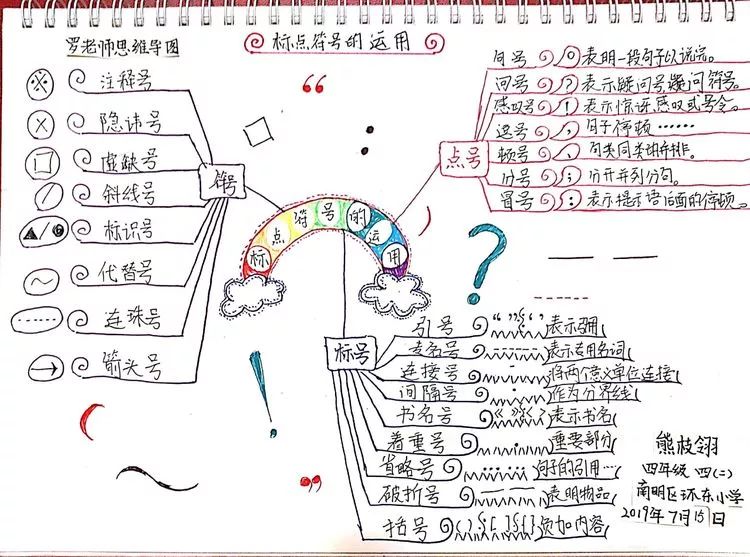 罗老师思维导图
标点符号的运用
注释号
隐讳号
虚缺号
斜线号
标识号
代替号
连珠号
箭头号
符号
标点符号的运用
点号
句号 。 表明一段句子以说完。
问号 ? 表示疑问号疑问符号。
感叹号 ! 表示惊讶感叹或号令。
逗号 , 句子停顿……
顿号 、 句类同类词并排。
分号 ; 分开并列分句。
冒号 : 表示提示语后面的停顿。
标号
引号 “ ” ‘ ’ 表示引用
专名号 表示专用名词
连接号 - 将两个意义单位连接
间隔号 · 作为分界线
书名号 《 》〈 〉 表示书名
着重号 · 重要部分
省略号 …… 句子的引用…
破折号 —— 表明物品
括号 ( ) [ ] { } 负加内容
熊枝翎
四年级 四(二)
南明区环东小学
2019年7月15日